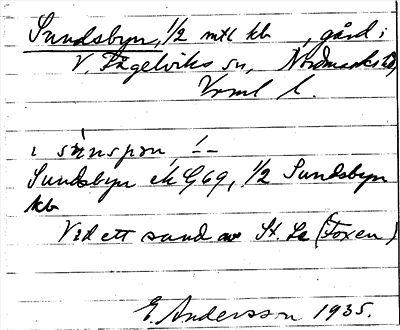 Sundsbyn, 1/2 mtl kb, gård i
V. Fågelviks sn, Nordmarks hd,
Vrml l.
i sŭnsbyn, !–
Sundsbyn ek G69, 1/2 Sundsbyn
kb
Vid ett sund av St. Le (Foxen)
E. Andersson 1935.